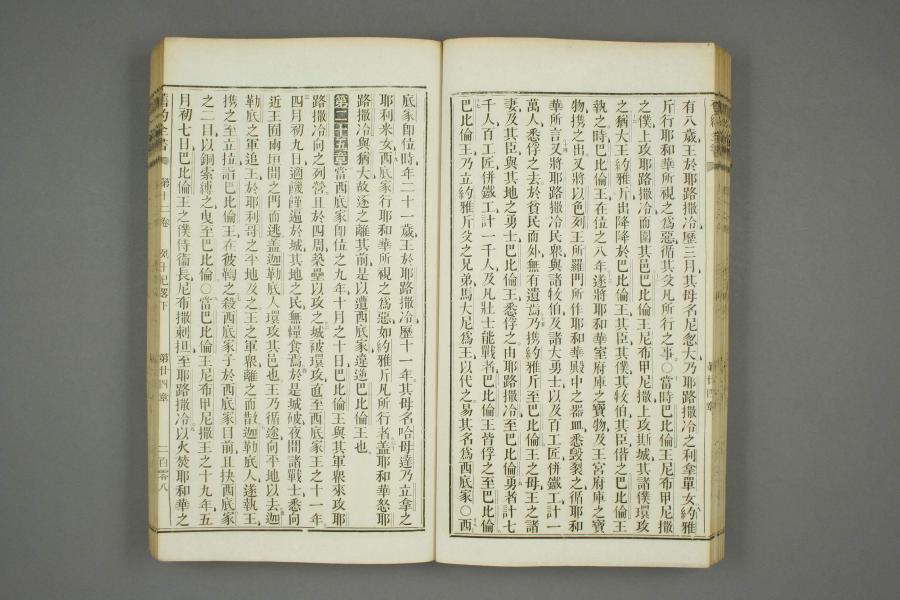 有八歲王於耶路撒冷歷三月其母名尼忽大乃耶路撒冷之利拿單女約雅
斤行耶和華所視之爲惡循其父凡所行之事○當時巴比倫王尼布甲尼撒
之僕上攻耶路撒冷而圍其邑巴比倫王尼布甲尼撒上攻斯城其諸僕環攻
之猶大王約雅斤出降降於巴比倫王其臣其僕其較伯其臣偕之巴比倫王
執之時巴比倫王在位之八年遂將耶和華室府庫之寶物及王宮府庫之寶
物攜之出又將以色列王所羅門所作耶和華殿中之器皿悉毀裂之循耶和
華所言又將耶路撒冷民衆與諸較伯及諸大勇士以及百工匠併鐵工計一
萬人悉俘之去於貧民而外無有遺焉乃攜約雅斤至巴比倫及王之母王之諸
妻及其臣與其地之勇士巴比倫王悉俘之由耶路撒冷至巴比倫勇者計七
千人百工匠併鐵工計一千人及凡壯士能戰者巴比倫王皆俘之至巴比倫
巴比倫王乃立約雅斤父之兄弟馬大尼爲王以代之易其名爲西底家○西
底家卽位時年二十一歲王於耶路撒冷歷十一年其母名哈母達乃立拿之
耶利米女西底家行耶和華所視之爲惡如約雅斤凡所行者蓋耶和華怒耶
路撒冷與猶大故逐之離其前是以遭西底家違逆巴比倫王也
第二十五章當西底家卽位之九年十月之十日巴比倫王與其軍衆來攻耶
路撒冷向之列營且於四周築壘以攻之城被環攻直至西底家王之十一年
四月初九日適饑饉逼於城其地之民無糧食焉於是城破夜間諸戰士悉向
近王囿兩垣間之門而逃蓋迦勒底人環攻其邑也王乃循途向平地以去迦
勒底之軍追王於耶利哥之平地及之王之軍衆離之而散迦勒底人遂執王
攜之至立拉詣巴比倫王在彼鞫之殺西底家子於西底家目前且抉西底家
之二目以銅索縛之曳至巴比倫○當巴比倫王尼布甲尼撒王之十九年五
月初七日巴比倫王之僕侍衞長尼布撒剌担至耶路撒冷以火焚耶和華之
舊約全書 第十一卷 列王紀畧下 第廿四章 二百零八
第廿四章